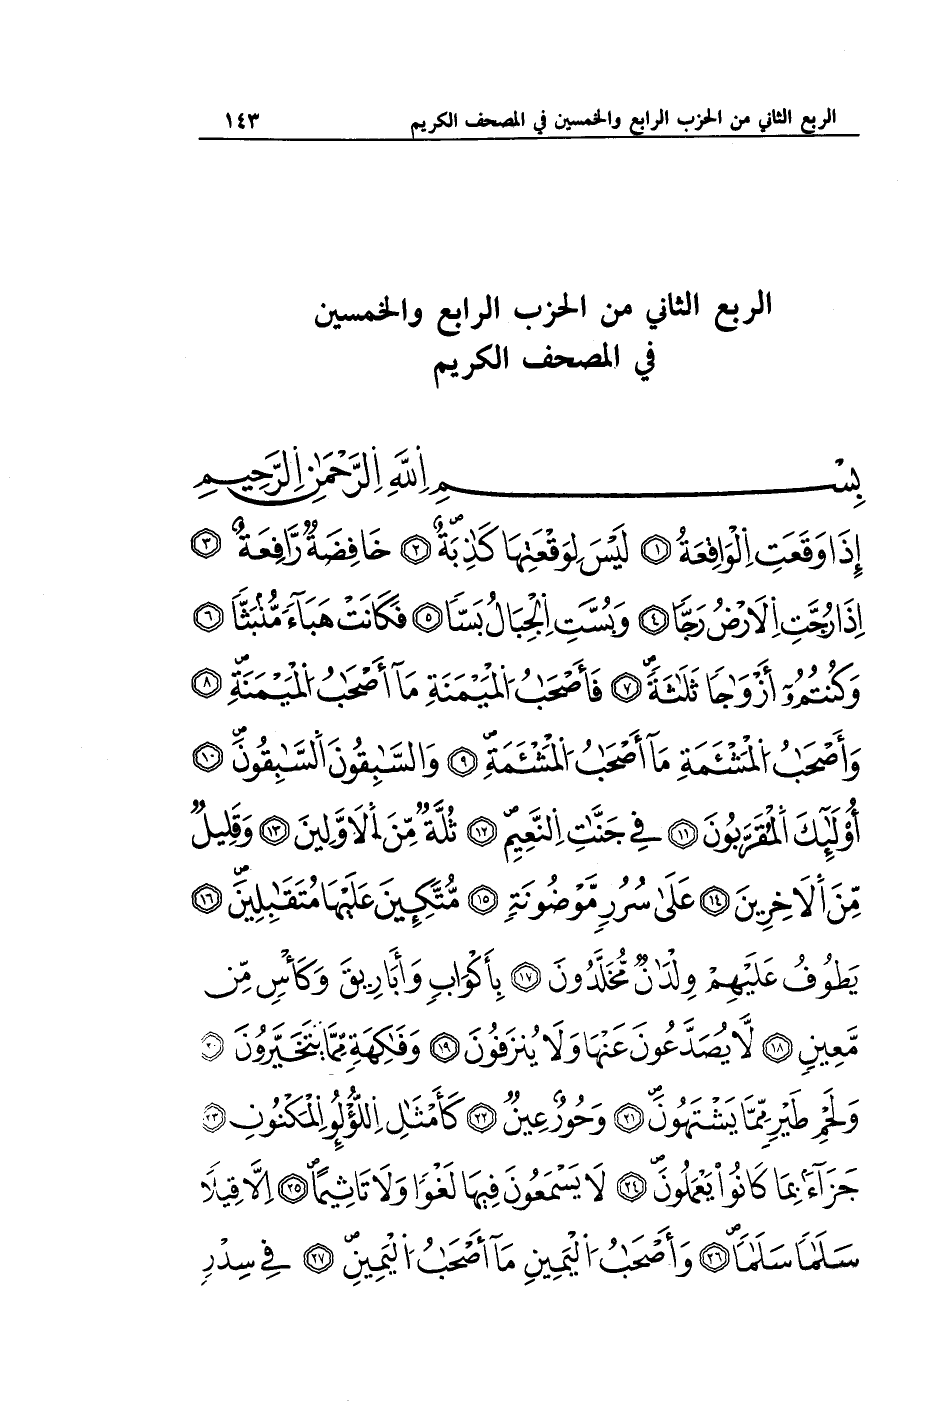 الربع الثاني من الحزب الرابع والخمسين في المصحف الكريم ١٤٣
الربع الثاني من الحزب الرابع والخمسين
في المصحف الكريم
بِسْمِ اِللَّهِ اِلرَّحْمَٰنِ اِلرَّحِيمِ
إِذَا وَقَعَتِ اِلْوَاقِعَةُ ١ لَيْسَ لِوَقْعَتِهَا كَاذِبَةٌۖ ٢ خَافِضَةٌ رَّافِعَةٌ ٣
اِذَا رُجَّتِ اِلَارْضُ رَجّٗا ٤ وَبُسَّتِ اِلْجِبَالُ بَسّٗا ٥ فَكَانَتْ هَبَآءٗ مُّنۢبَثّٗا ٦
وَكُنتُمُۥٓ أَزْوَٰجٗا ثَلَٰثَةٗۖ ٧ فَأَصْحَٰبُ اُلْمَيْمَنَةِ مَآ أَصْحَٰبُ اُلْمَيْمَنَةِۖ ٨
وَأَصْحَٰبُ اُلْمَشْـَٔمَةِ مَآ أَصْحَٰبُ اُلْمَشْـَٔمَةِۖ ٩ وَالسَّٰبِقُونَ اَلسَّٰبِقُونَۖ ١٠
أُوْلَٰٓئِكَ اَلْمُقَرَّبُونَ ١١ فِي جَنَّٰتِ اِلنَّعِيمِۖ ١٢ ثُلَّةٌ مِّنَ اَلَاوَّلِينَ ١٣ وَقَلِيلٌ
مِّنَ اَلَاخِرِينَ ١٤ عَلَىٰ سُرُرٖ مَّوْضُونَةٖ ١٥ مُّتَّكِـِٕينَ عَلَيْهَا مُتَقَٰبِلِينَۖ ١٦
يَطُوفُ عَلَيْهِمْ وِلْدَٰنٌ مُّخَلَّدُونَ ١٧ بِأَكْوَابٖ وَأَبَارِيقَ وَكَأْسٖ مِّن
مَّعِينٖ ١٨ لَّا يُصَدَّعُونَ عَنْهَا وَلَا يُنزَفُونَ ١٩ وَفَٰكِهَةٖ مِّمَّا يَتَخَيَّرُونَ ٢٠
وَلَحْمِ طَيْرٖ مِّمَّا يَشْتَهُونَۖ ٢١ وَحُورٌ عِينٌ ٢٢ كَأَمْثَٰلِ اِللُّؤْلُوِٕ اِلْمَكْنُونِ ٢٣
جَزَآءَۢ بِمَا كَانُواْ يَعْمَلُونَۖ ٢٤ لَا يَسْمَعُونَ فِيهَا لَغْوٗا وَلَا تَاثِيماًۖ ٢٥ اِلَّا قِيلٗا
سَلَٰمٗا سَلَٰمٗاۖ ٢٦ وَأَصْحَٰبُ اُلْيَمِينِ مَآ أَصْحَٰبُ اُلْيَمِينِۖ ٢٧ فِي سِدْرٖ